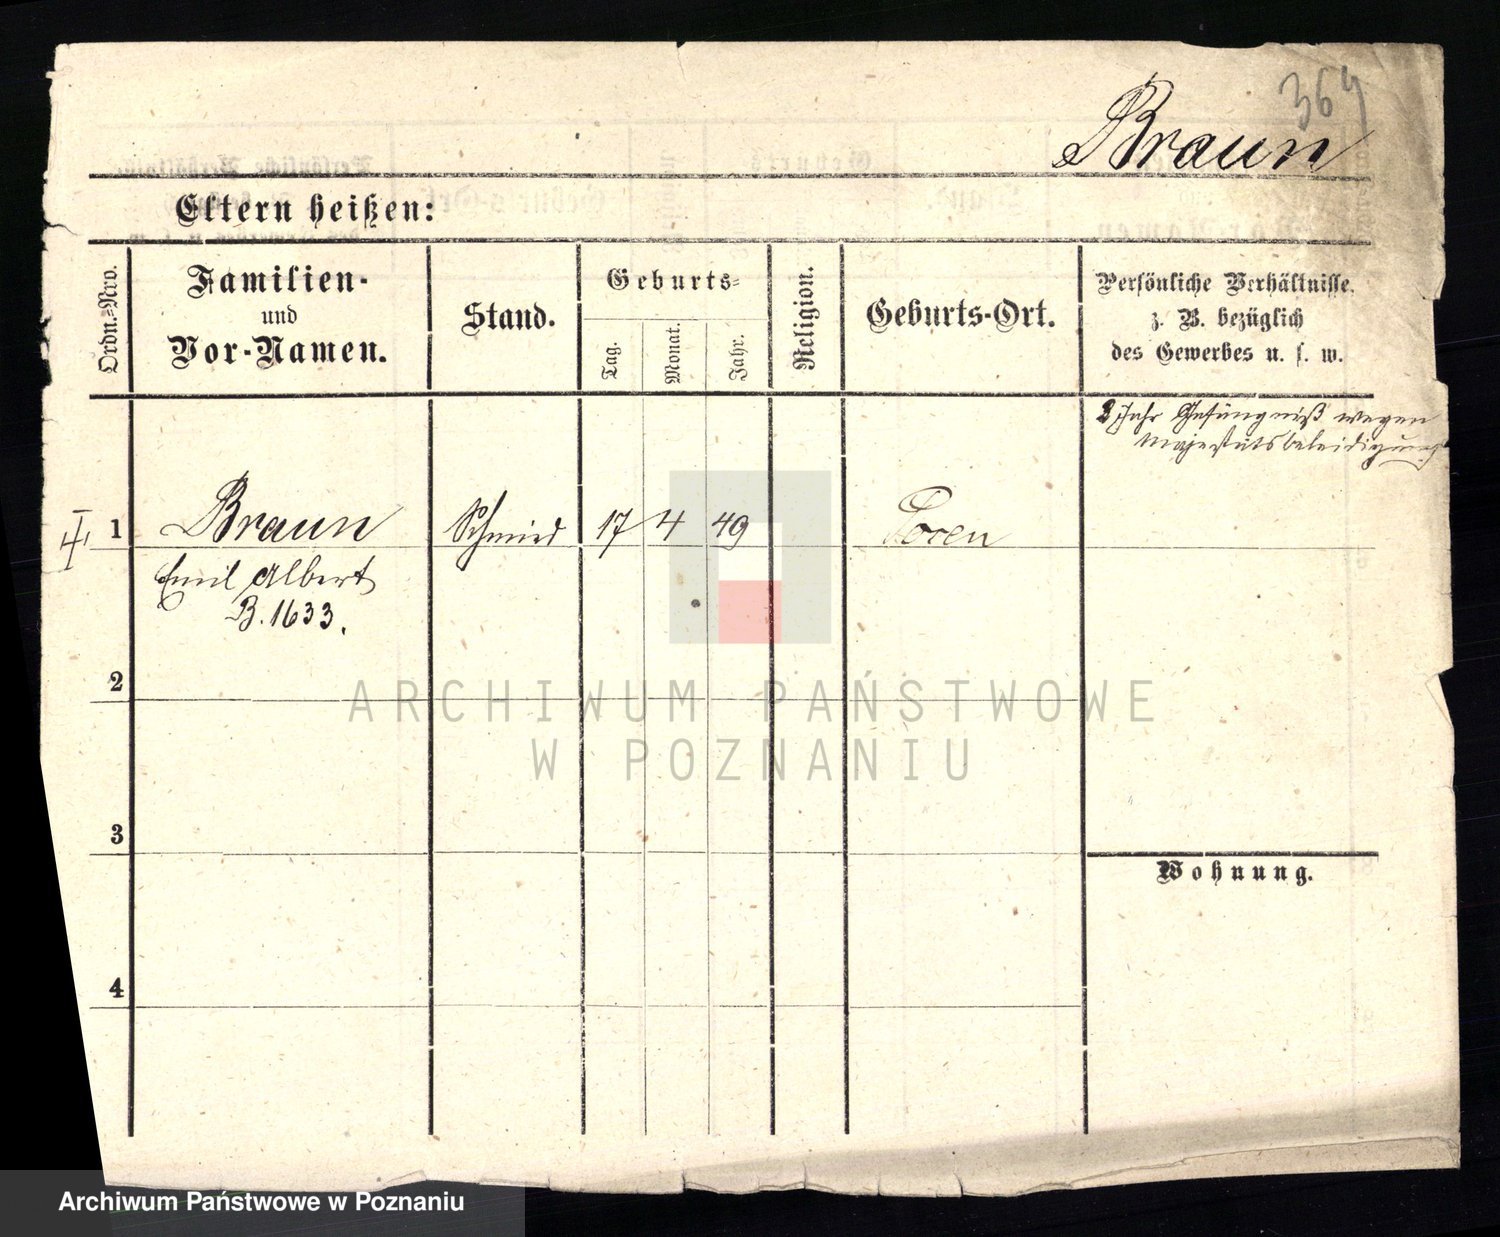 364
Braun
Eltern heißen:
Ordn.-Nro.
Familien-
und
Vor-Namen.
Stand.
Geburts-
Tag.
Monat.
Jahr.
Religion.
Geburts-Ort.
Persönliche Verhältnisse
z. B. bezüglich
des Gewerbes u. s. w.
2 Jahr Gefängniß wegen
Majestätsbeleidigung
1
Braun
Schmied
17
4
49
Emil Albert
B. 1633.
2
3
Wohnung.
4
ARCHIWUM PAŃSTWOWE
W POZNANIU
Archiwum Państwowe w Poznaniu